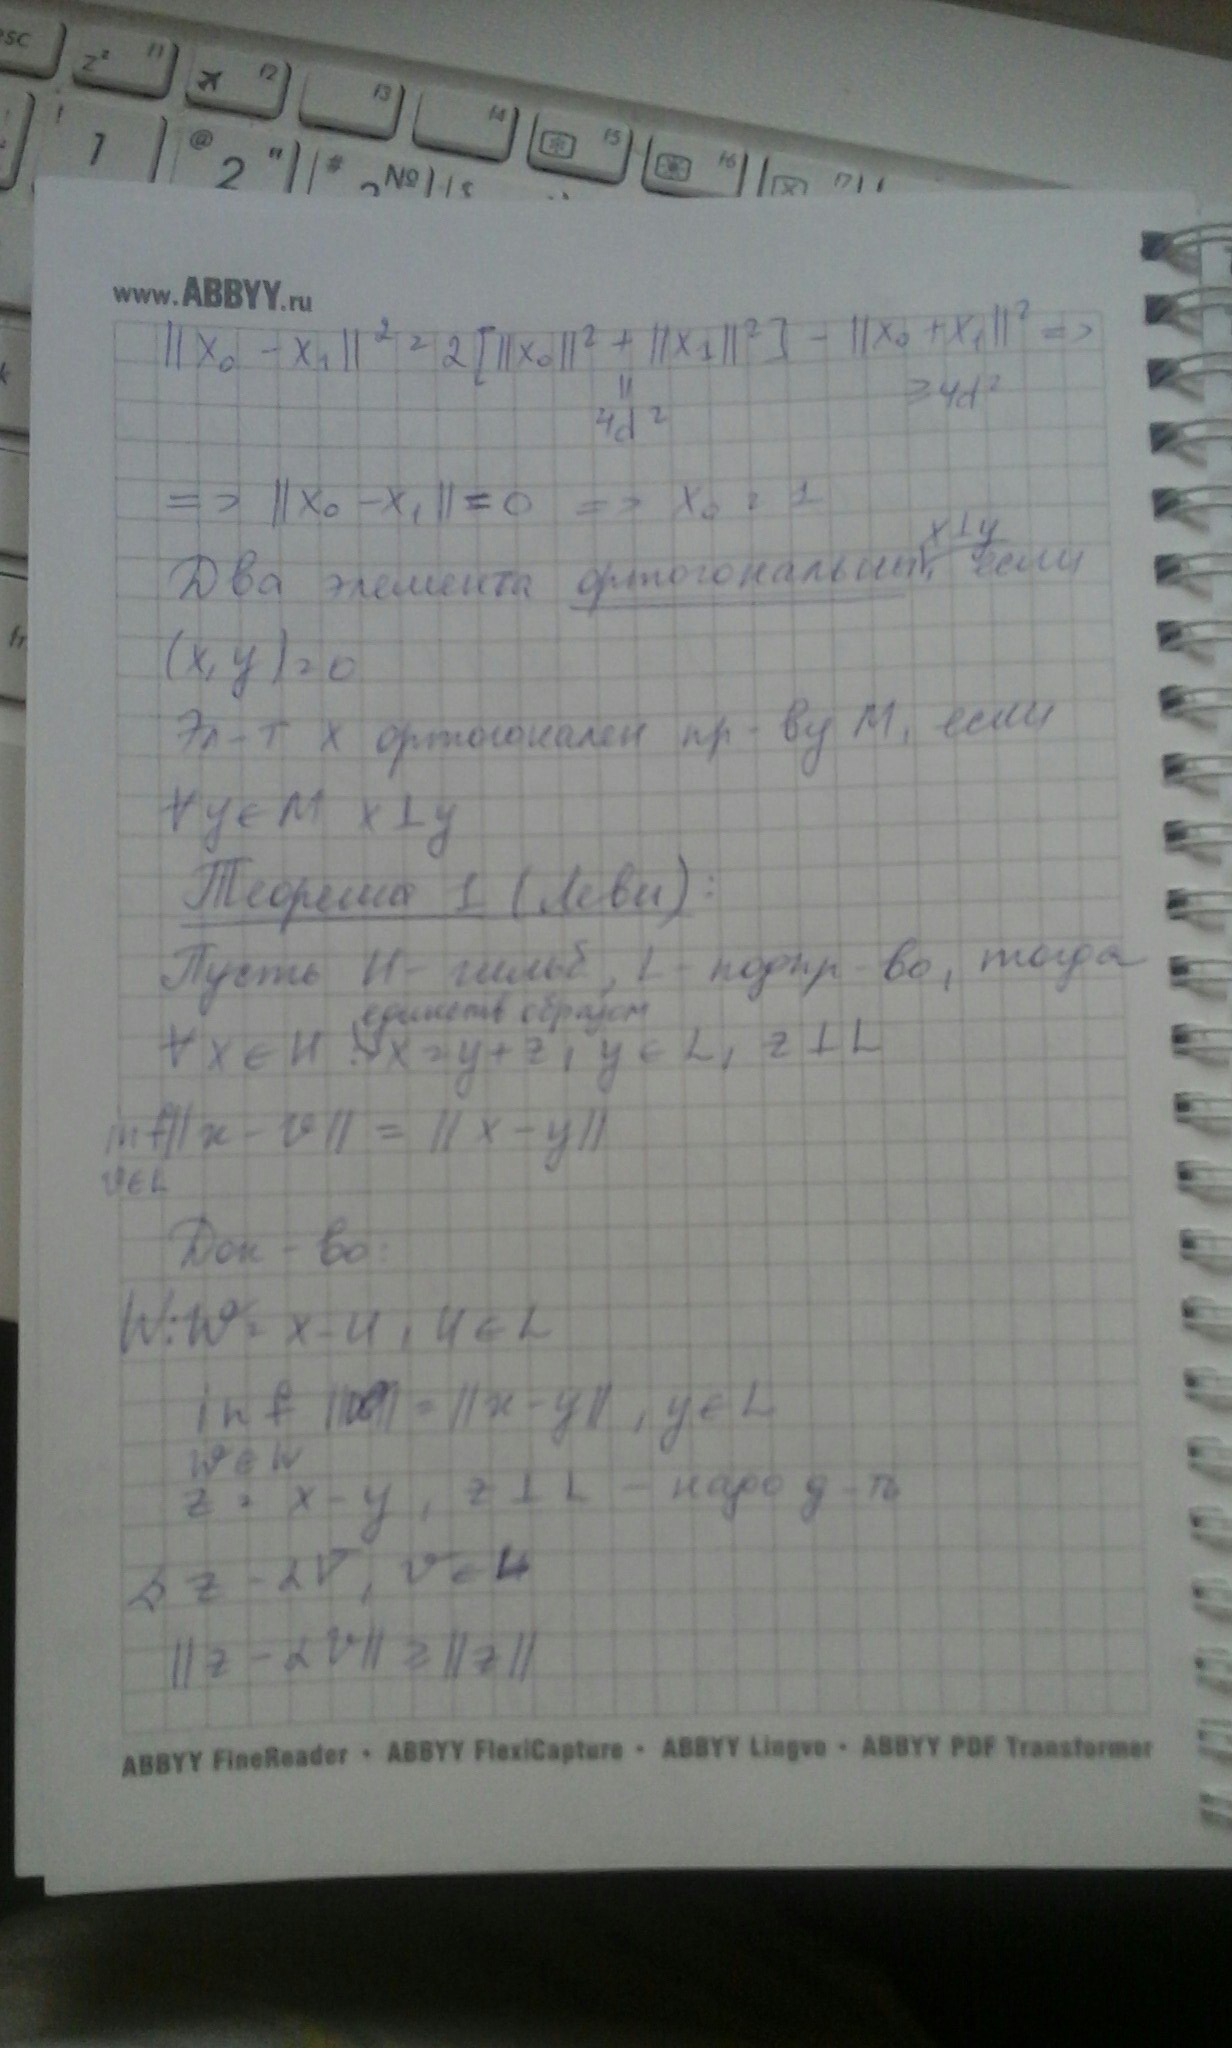 esc
z² F11 F12 F13 F14 F15 F16 F17
! 1 @ 2 " # №
www.ABBYY.ru
||x₀ - x₁||² = 2[||x₀||² + ||x₁||²] - ||x₀ + x₁||² =>
|| ≥4d²
4d²
=> ||x₀ - x₁|| = 0 => x₀ = 1
x⊥y
Два элемента ортогональны, если
(x, y) = 0
Эл-т x ортогонален пр-ву M, если
∀y∈M x⊥y
Теорема 1 (Леви):
Пусть H - гильб, L - подпр-во, тогда
единств образом
∀x∈H : x = y + z, y∈L, z⊥L
inf||x - v|| = ||x - y||
v∈L
Док-во:
W: w = x - u, u∈L
inf ||w|| = ||x - y||, y∈L
w∈W
z = x - y, z⊥L - надо д-ть
z - αv, v∈L
||z - αv|| ≥ ||z||
ABBYY FineReader • ABBYY FlexiCapture • ABBYY Lingvo • ABBYY PDF Transformer